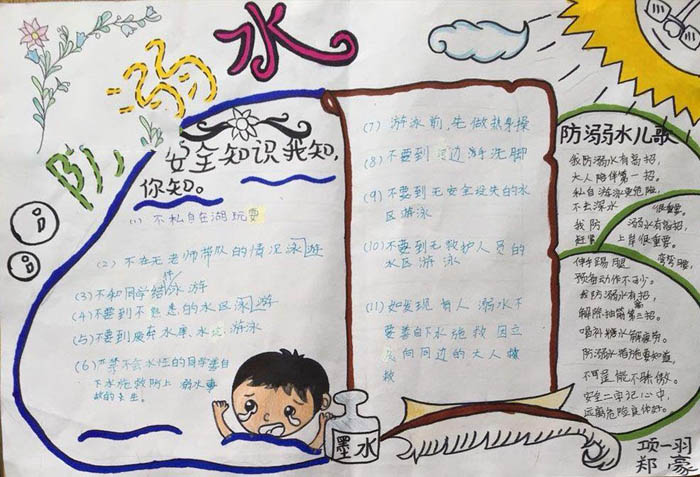 防溺水
安全知识我知,
你知。
(1) 不私自在湖玩耍
(2) 不在无老师带队的情况泳游
(3) 不和同学结伴游
(4) 不要到不熟悉的水区泳游
(5) 不要到废弃水库、水 游泳
(6) 严禁不会水性的同学善自
下水施救防上 溺水事
故的 生。
(7) 游泳前,先做热身操
(8) 不要到 边游洗脚
(9) 不要到无安全设失的水
区游泳
(10) 不要到无救护人员的
水区游泳
(11) 如发现 有人 溺水不
要善自下水施救 因立
向周边的大人

防溺水儿歌
我防溺水有高招,
大人陪伴第一招。
私自游泳更危险,
不去深水 很重要。
我防 溺水有高招,
赶紧 上岸很重要。
伸手踢腿 弯弯腰,
预备动作不可少。
我防溺水有招,
解除抽筋第三招。
喝补糖水解疲劳。
防溺水措施要知道,
不可逞能不骄傲。
安全二字记心中,
远离危险真你好。
墨水
项一羽
郑豪